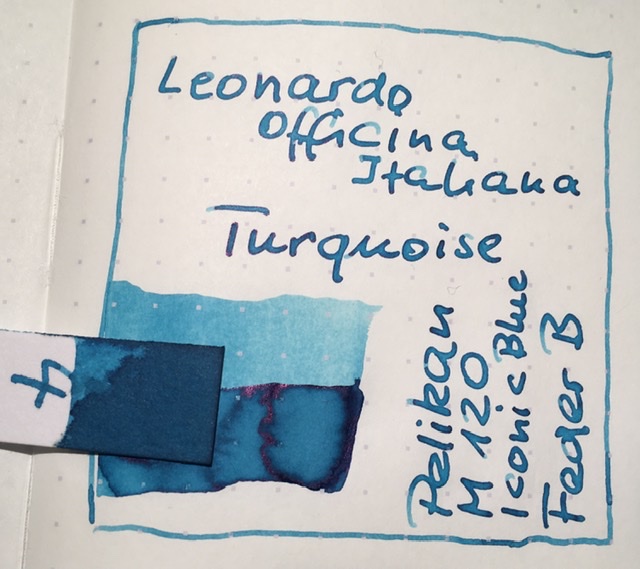 Leonardo
Officina
Italiana
Turquoise
4
Pelikan
M 120
Iconic Blue
Feder B